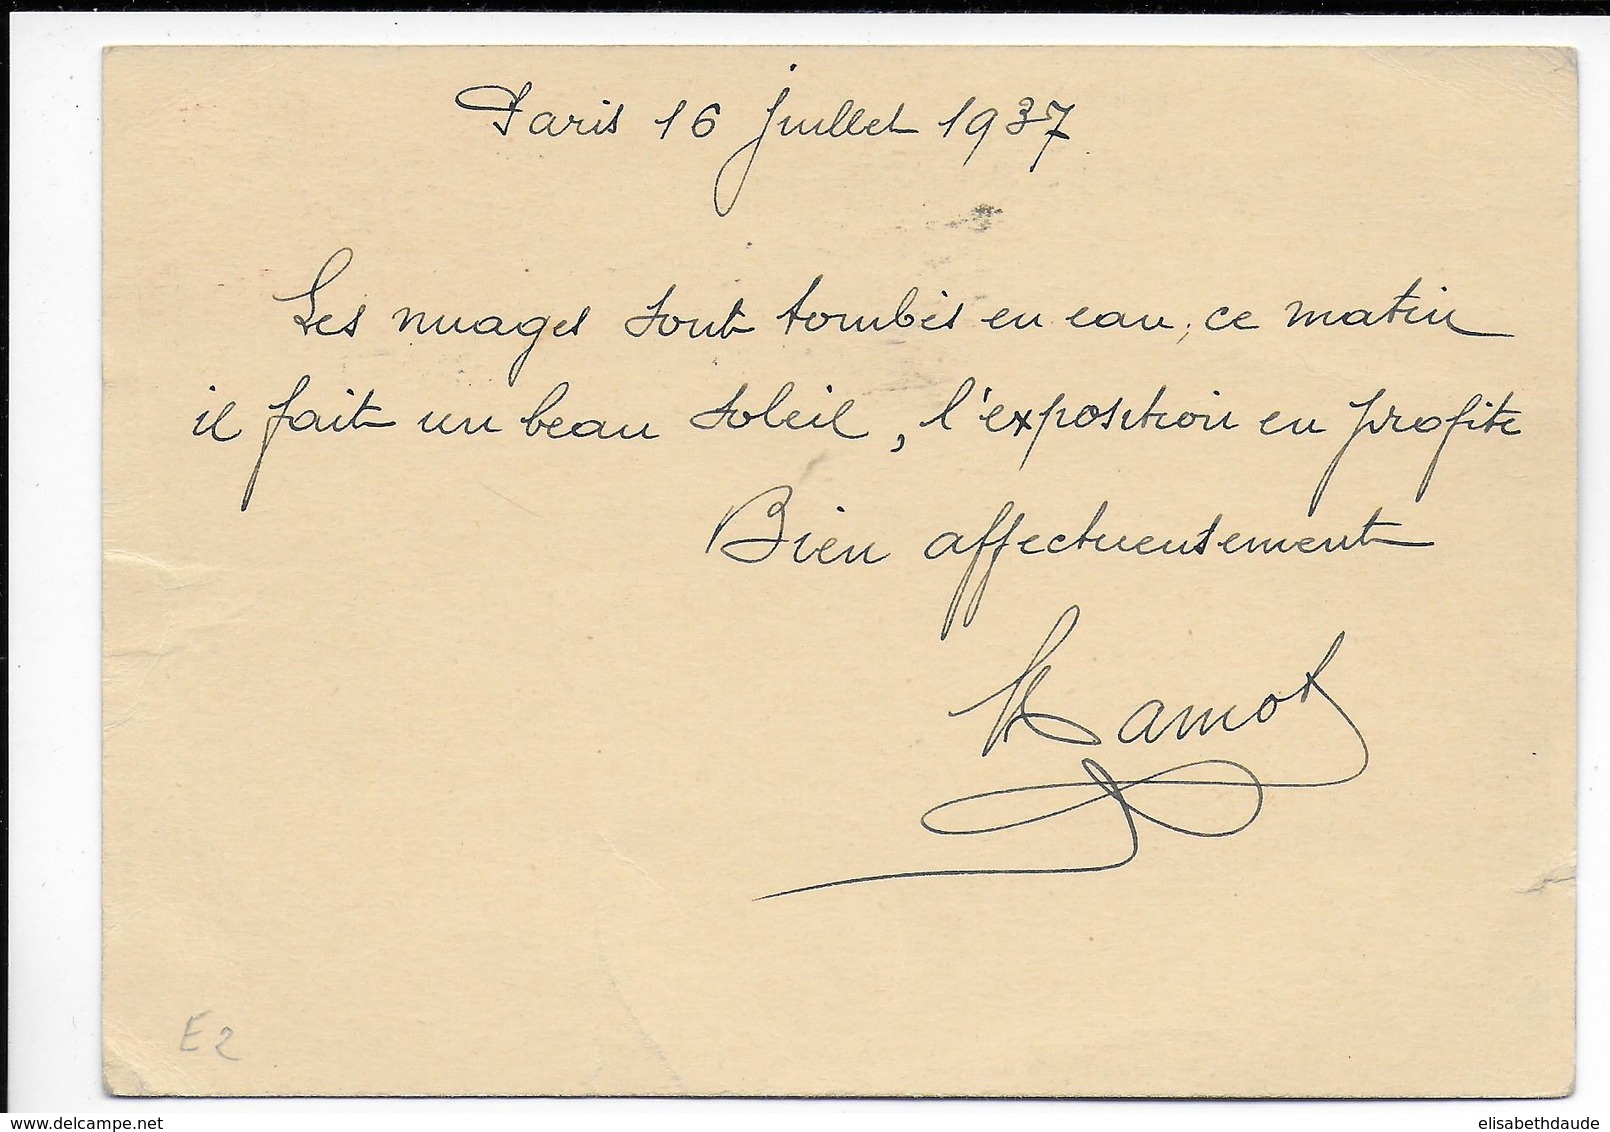 Paris 16 Juillet 1937
Les nuages sont tombés en eau, ce matin
il fait un beau soleil, l'exposition en profite
Bien affectueusement
Hamot
E2
elisabethdaude